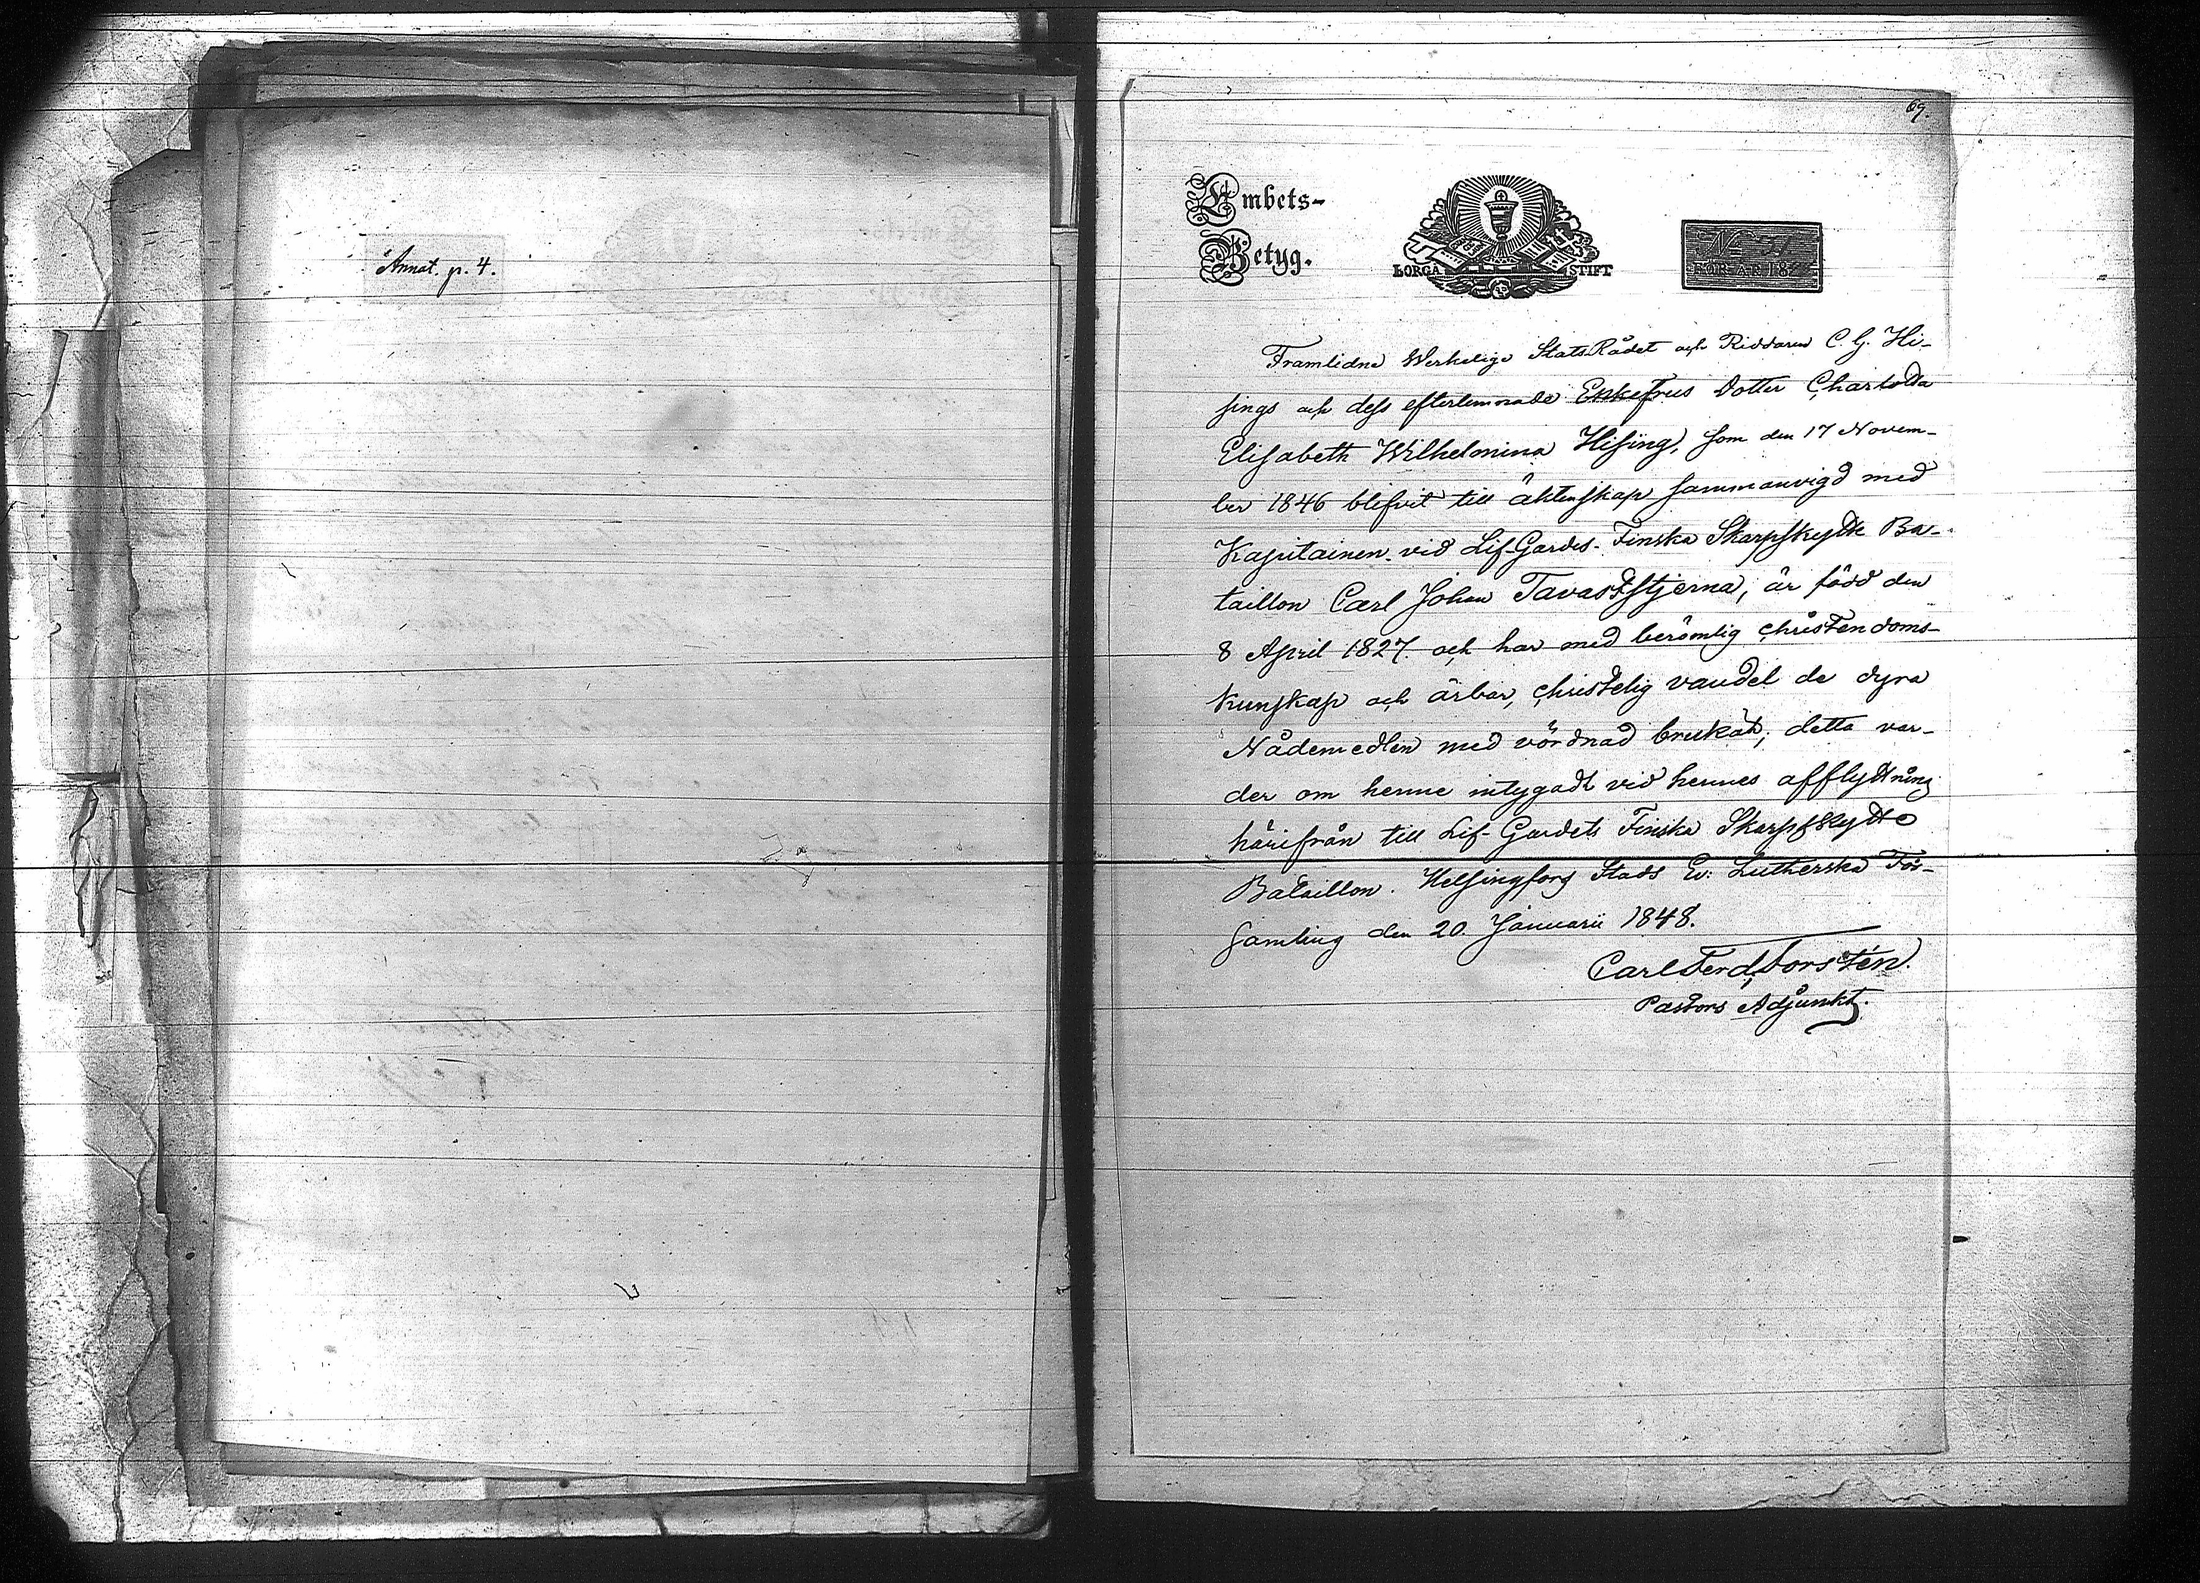 Annot. p. 4.
69.
Embets-
Betyg.
BORGÅ STIFT
No 31
FÖR ÅR 184
Framlidne Werkelige StatsRådet och Riddaren C. G. Hi-
sings och dess efterlemnade Enkefrus dotter Charlotta
Elisabeth Wilhelmina Hising, som den 17 Novem-
ber 1846 blifvit till äktenskap sammanvigd med
Kapitainen vid Lif-Gardes Finska Skarpskytte Ba-
taillon Carl Johan Tavaststjerna, är född den
8 April 1827. och har med berömlig christendoms-
kunskap och ärbar, christelig vandel de dyra
Nådemedlen med vördnad brukat; detta var-
der om henne intygadt vid hennes afflyttning
härifrån till Lif-Gardets Finska Skarpskytte
Bataillon. Helsingfors Stads Ev: Lutherska För-
samling den 20. Januarii 1848.
Carl Ferd. Forstén.
Pastors Adjunkt.